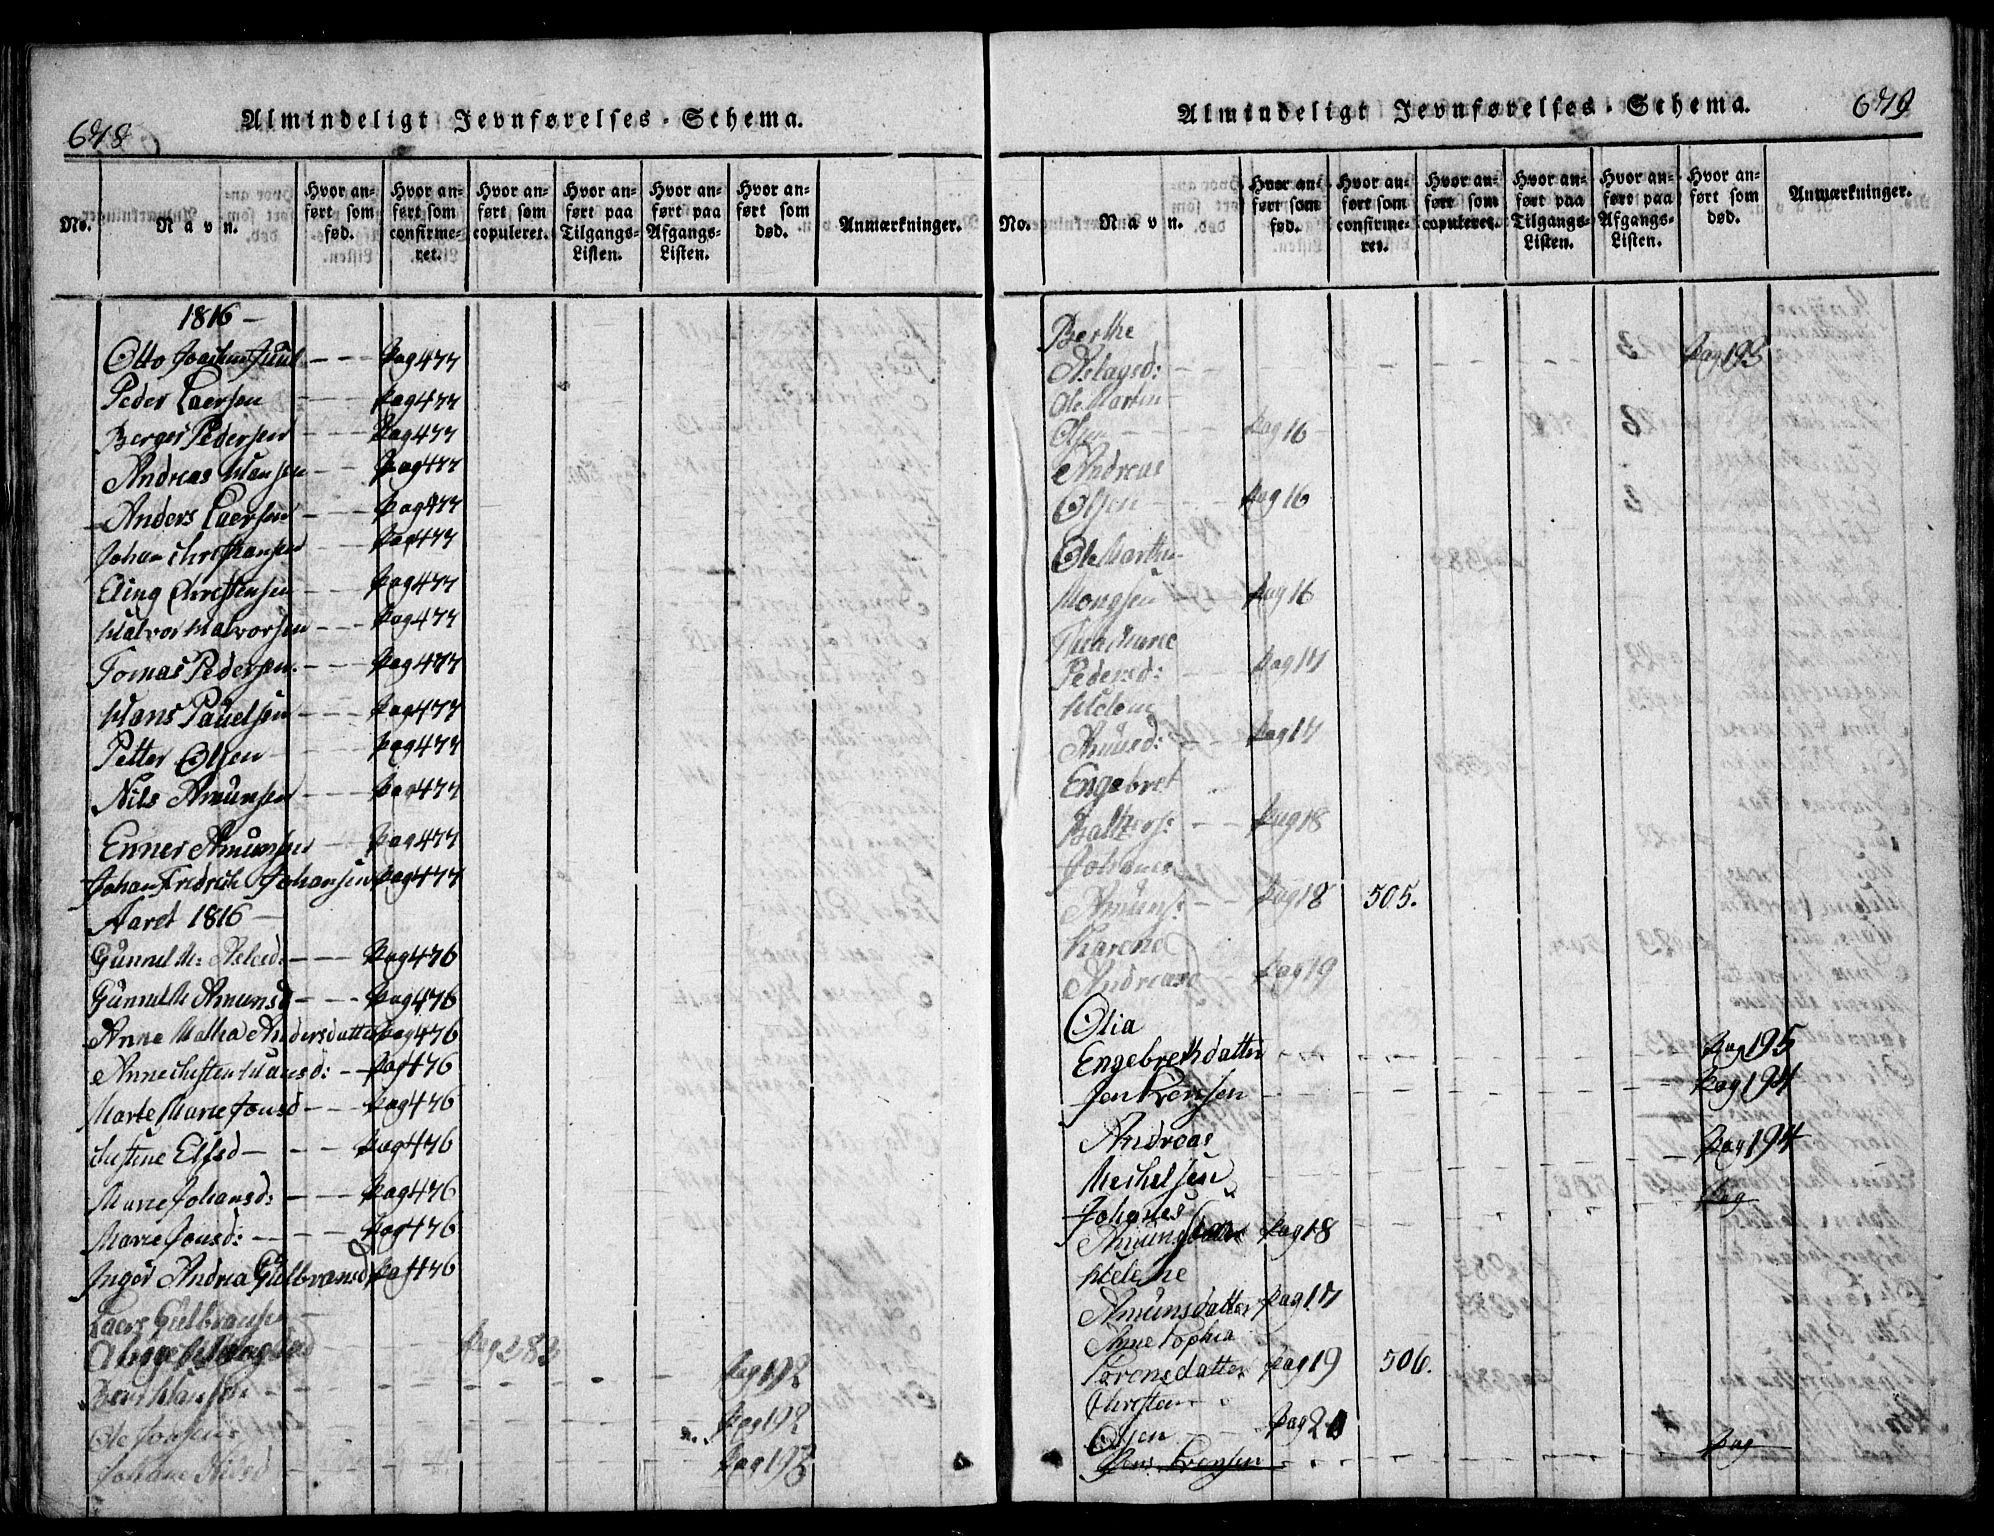 678
Almindeligt Jevnførelses-Schema.
No.
Navn.
Hvor anført som fød.
Hvor anført som confirmeret.
Hvor anført som copuleret.
Hvor anført paa Tilgangs-Listen.
Hvor anført paa Afgangs-Listen.
Hvor anført som død.
Anmærkninger.
1816 -
Otto Joachim Juul - - - Pag 477
Peder Laersen - - - Pag 477
Berger Pedersen - - - Pag 477
Andreas Hansen Pag 477
Anders Laersen - - - Pag 477
Johan Christiansen - - Pag 477
Eling Christensen - - Pag 477
Halvor Halvorsen - - Pag 477
Tomas Pedersen - - Pag 477
Hans Pauelsen - - - Pag 477
Petter Olsen - - - Pag 477
Nils Amunsen - - - Pag 477
Enner Amunsen - Pag 477
Johan Fredrich Johansen Pag 477
Aaret 1816 -
Gunnel M: - - - Pag 476
Gunnel M Amunsd - - - Pag 476
Anne Matha Andersdatter Pag 476
Anne Hansd: - Pag 476
Marte Marie Jonsd - - Pag 476
Elfsd - - - - Pag 476
Marie Johansd: - - - Pag 476
Marie Jonsd: - - - - Pag 476
Inger Andrea Gulbransd Pag 476
Laers Gulbransen -
Pag 283
Hansen Pag 192
Ole Jonsen Pag 192
Johane Nilsd Pag 193
Almindeligt Jevnførelses-Schema.
679
No.
Navn.
Hvor anført som fød.
Hvor anført som confirmeret.
Hvor anført som copuleret.
Hvor anført paa Tilgangs-Listen.
Hvor anført paa Afgangs-Listen.
Hvor anført som død.
Anmærkninger.
Berthe
Aslagsd: - - - Pag 193
Ole Martin
Olsen - - - - Pag 16
Andreas
Olsen - - - Pag 16
Ole Marthin
Mongsen Pag 16
Thea Marie
Pedersd: - - - Pag 17
Helene
Amunsd: - - Pag 17
Engebret
Balzers: - - Pag 18
Johanes
Amuns: Pag 18 505.
Karene
Andreasd Pag 19
Olia
Engebrethdatter - - - Pag 195
Jon Sørensen - - - Pag 194
Andreas
Michelsen - - - Pag 194
Johanes Pag
Amunsdatter Pag 18
Helene
Amunsdatter Pag 17
Anne Sophia
Sorensdatter Pag 19 506.
Christian
Olsen - - - Pag 20
Jens Sorensen - - - Pag